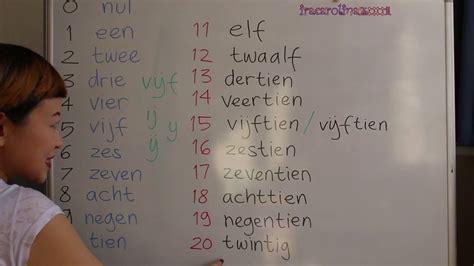 0 nul
1 een
2 twee
3 drie
4 vier
5 vijf
6 zes
7 zeven
8 acht
9 negen
tien
vijf
ij y
ÿ
11 elf
12 twaalf
13 dertien
14 veertien
15 vijftien / vÿftien
16 zestien
17 zeventien
18 achttien
19 negentien
20 twintig